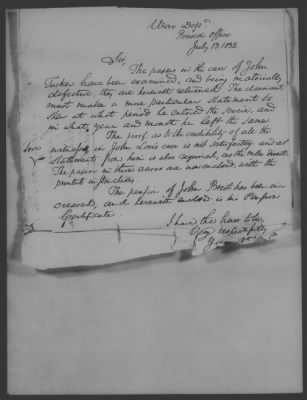 War Dept
Pension Office
July 13. 1832
Sir,
The papers in the case of John
Tucker have been examined, and being materially
defective, they are herewith returned. The claimant
must make a more particular statement to
shew at what period he entered the service, and
in what year and month he left the same.
The proof as to the credibility of all the
witnesses in John case is not satisfactory, and a
statement from him is also required, as the rules direct.
The papers in these cases are now enclosed, with the
printed instructions.
The pension of John has been in
creased, and herewith enclosed is his Pension
Certificate.
I have the honor to be,
Very respectfully